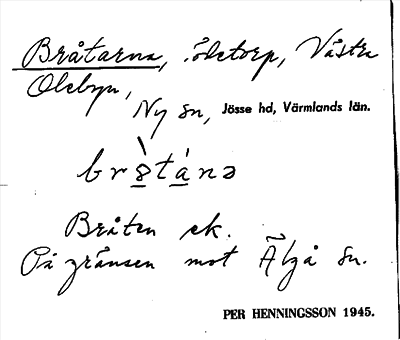 Bråtarna, ödetorp, Västra
Oleby​n,
Ny sn, Jösse hd, Värmlands län.
br8̀tánə
Bråten ek.
På gränsen mot Älgå sn.
PER HENNINGSSON 1945.